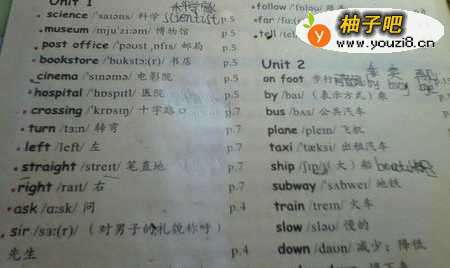 Unit 1
science /'saɪəns/ 科学 scientist p.5
museum /mju'ziəm/ 博物馆 p.5
post office /'pəʊst ˌɒfɪs/ 邮局 p.5
bookstore /'bʊkstɔː(r)/ 书店 p.5
cinema /'sɪnəmə/ 电影院 p.5
hospital /'hɒspɪtl/ 医院 p.5
crossing /'krɒsɪŋ/ 十字路口 p.7
turn /tɜːn/ 转弯 p.7
left /left/ 左 p.7
straight /streɪt/ 笔直地 p.7
right /raɪt/ 右 p.7
ask /ɑːsk/ 问 p.4
sir /sɜː(r)/ (对男子的礼貌称呼)
先生 p.4
follow /'fɒləʊ/
far /fɑː(r)/
tell
柚子吧
www.youzi8.cn
Unit 2
on foot 步行
by /baɪ/ (表示方式)乘
bus /bʌs/ 公共汽车
plane /pleɪn/ 飞机
taxi /'tæksi/ 出租汽车
ship /ʃɪp/ (大)船
subway /'sʌbweɪ/ 地铁
train /treɪn/ 火车
slow /sləʊ/ 慢的
down /daʊn/ 减少；降低